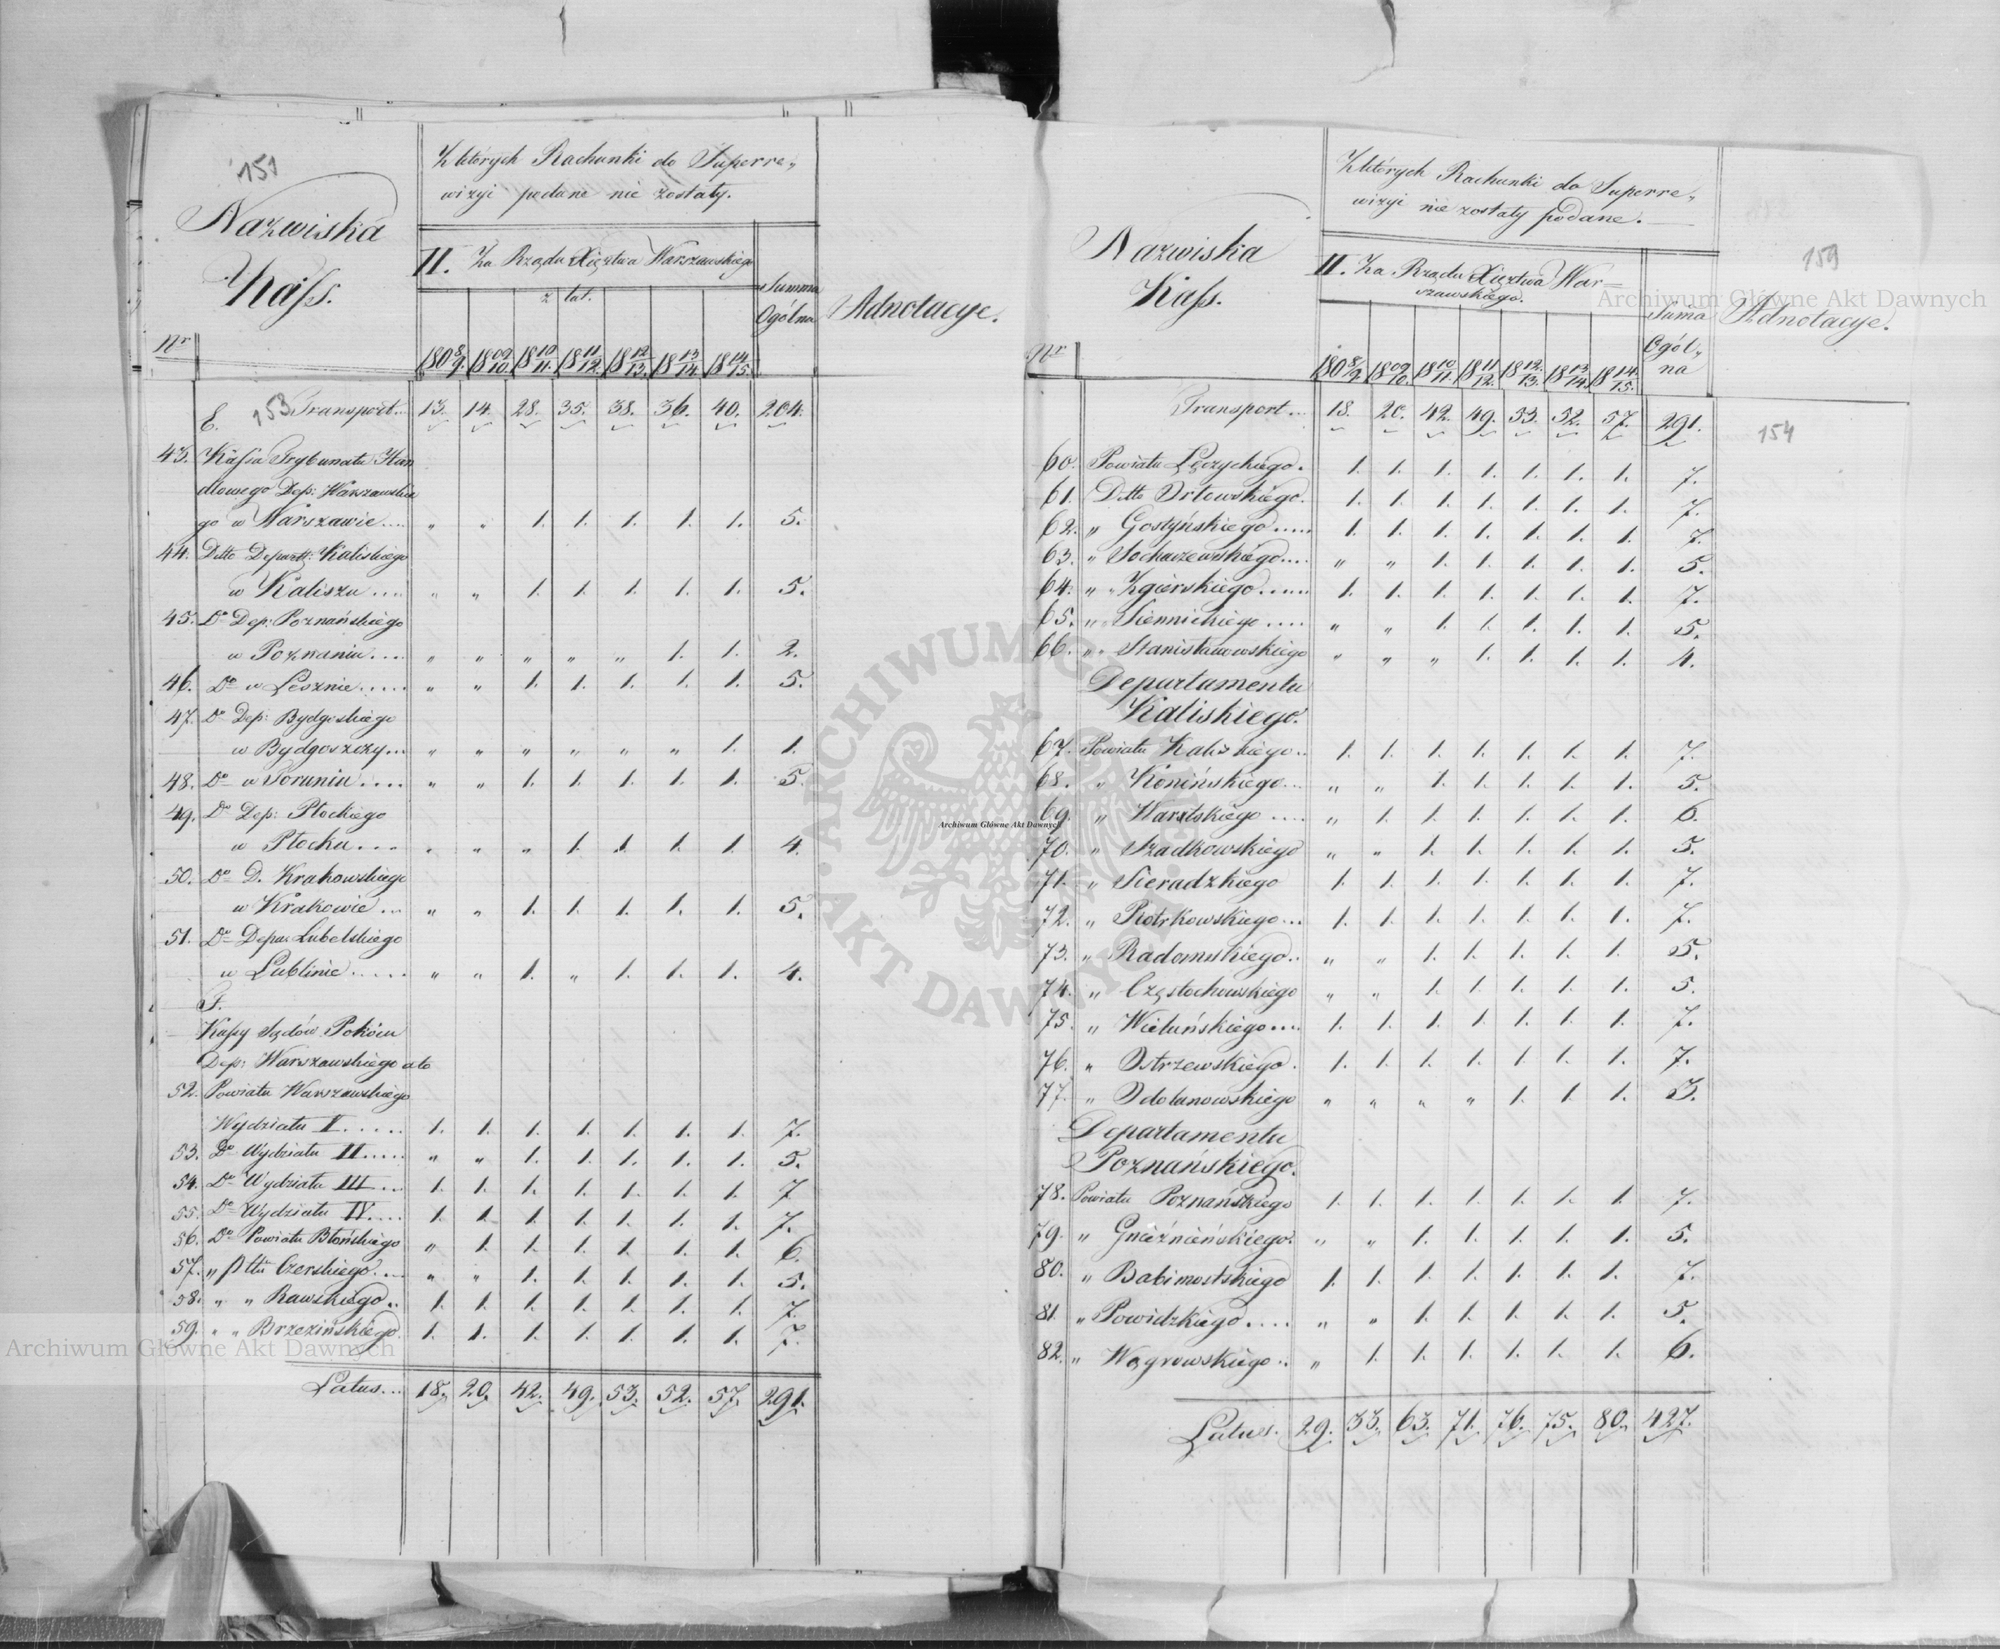 151
Nazwiska
Kass.
Których Rachunki do Superre„
wizyi podane nie zostały.
II. Za Rządu Xięztwa Warszawskiego
z lat.
Summa
Ogólna
Adnotacye.
Nr 180 8/9. 18 09/10. 18 10/11. 18 11/12. 18 12/13. 18 13/14. 18 14/15.
E. 153 Transport... 13. 14. 28. 35. 38. 36. 40. 204.
43. Kassa Trybunału Han
dlowego Dep: Warszawskie
go w Warszawie.... „ „ 1. 1. 1. 1. 1. 5.
44. Ditto Departt: Kaliskiego
w Kaliszu.... „ „ 1. 1. 1. 1. 1. 5.
45. Do Dep: Poznańskiego
w Poznaniu.... „ „ „ „ „ 1. 1. 2.
46. Do w Lesznie..... „ „ 1. 1. 1. 1. 1. 5.
47. Do Dep: Bydgoskiego
w Bydgoszczy... „ „ „ „ „ „ 1. 1.
48. Do w Toruniu..... „ „ 1. 1. 1. 1. 1. 5.
49. Do Dep: Płockiego
w Płocku.... „ „ „ 1. 1. 1. 1. 4.
50. Do D. Krakowskiego
w Krakowie... „ „ 1. 1. 1. 1. 1. 5.
51. Do Depar Lubelskiego
w Lublinie..... „ „ 1. „ 1. 1. 1. 4.
F.
Kassy Sądów Pokóiu
Dep: Warszawskiego ato
52. Powiatu Warszawskiego
Wydziału I...... 1. 1. 1. 1. 1. 1. 1. 7.
53. Do Wydziału II..... „ „ 1. 1. 1. 1. 1. 5.
54. Do Wydziału III... 1. 1. 1. 1. 1. 1. 1. 7
55. Do Wydziału IV.... 1. 1. 1. 1. 1. 1. 1. 7.
56. Do Powiatu Błońskiego „ 1. 1. 1. 1. 1. 1. 6.
57. „ Czerskiego.... „ „ 1. 1. 1. 1. 1. 5.
58. „ „ Rawskiego.. 1. 1. 1. 1. 1. 1. 1. 7.
59. „ „ Brzezińskiego. 1. 1. 1. 1. 1. 1. 1. 7.
Latus... 18. 20. 42. 49. 53. 52. 57. 291.
Nazwiska
Kass.
Których Rachunki do Superre„
wizyi nie zostały podane.
II. Za Rządu Xięztwa War=
szawskiego.
Suma
Ogól„
na
159
Adnotacye.
Nr 180 8/9. 18 09/10. 18 10/11. 18 11/12. 18 12/13. 18 13/14. 18 14/15.
Transport... 18. 20. 42. 49. 53. 52. 57. 291. 154
60. Powiatu Łęczyckiego. 1. 1. 1. 1. 1. 1. 1. 7.
61. Ditto Orłowskiego. 1. 1. 1. 1. 1. 1. 1. 7.
62. „ Gostyńskiego..... 1. 1. 1. 1. 1. 1. 1. 7.
63. „ Sochaczewskiego.... „ „ 1. 1. 1. 1. 1. 5.
64. „ „ Zgierskiego..... 1. 1. 1. 1. 1. 1. 1. 7.
65. „ „ Siennickiego.... „ „ 1. 1. 1. 1. 1. 5.
66. „ „ Stanisławowskiego „ „ „ 1. 1. 1. 1. 4.
Departamentu
Kaliskiego.
67. Powiatu Kaliskiego.. 1. 1. 1. 1. 1. 1. 1. 7.
68. „ Konińskiego... „ „ 1. 1. 1. 1. 1. 5.
69. „ Wartskiego.... „ 1. 1. 1. 1. 1. 1. 6.
70. „ Szadkowskiego „ „ 1. 1. 1. 1. 1. 5.
71. „ Sieradzkiego 1. 1. 1. 1. 1. 1. 1. 7.
72. „ Piotrkowskiego... 1. 1. 1. 1. 1. 1. 1. 7.
73. „ Radomskiego.. „ „ 1. 1. 1. 1. 1. 5.
74. „ Częstochowskiego „ „ 1. 1. 1. 1. 1. 5.
75. „ Wieluńskiego.... 1. 1. 1. 1. 1. 1. 1. 7.
76. „ Ostrzewskiego. 1. 1. 1. 1. 1. 1. 1. 7.
77. „ Odolanowskiego „ „ „ „ 1. 1. 1. 3.
Departamentu
Poznańskiego.
78. Powiatu Poznańskiego 1. 1. 1. 1. 1. 1. 1. 7.
79. „ Gnieźnieńskiego. „ „ 1. 1. 1. 1. 1. 5.
80. „ Babimostskiego 1. 1. 1. 1. 1. 1. 1. 7.
81. „ Powidzkiego.... „ „ 1. 1. 1. 1. 1. 5.
82. „ Wągrowskiego.. „ 1. 1. 1. 1. 1. 1. 6.
Latus. 29. 33. 63. 71. 76. 75. 80. 427.
Archiwum Główne Akt Dawnych
Archiwum Główne Akt Dawnych
Archiwum Główne Akt Dawnych